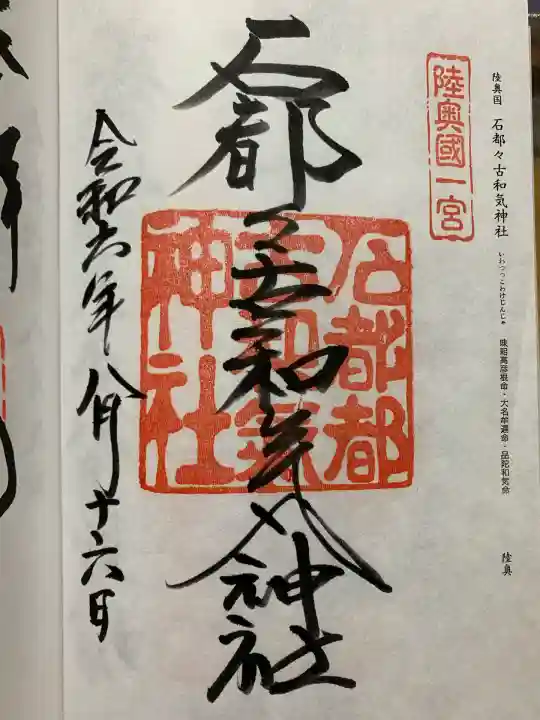 陸奥国 石都々古和気神社 いわつつこわけじんじゃ 味耜高彦根命・大名牟遅命・品陀和気命 陸奥
陸奥國一宮
石都々古和氣神社
石都都古和氣神社
令和六年八月十六日